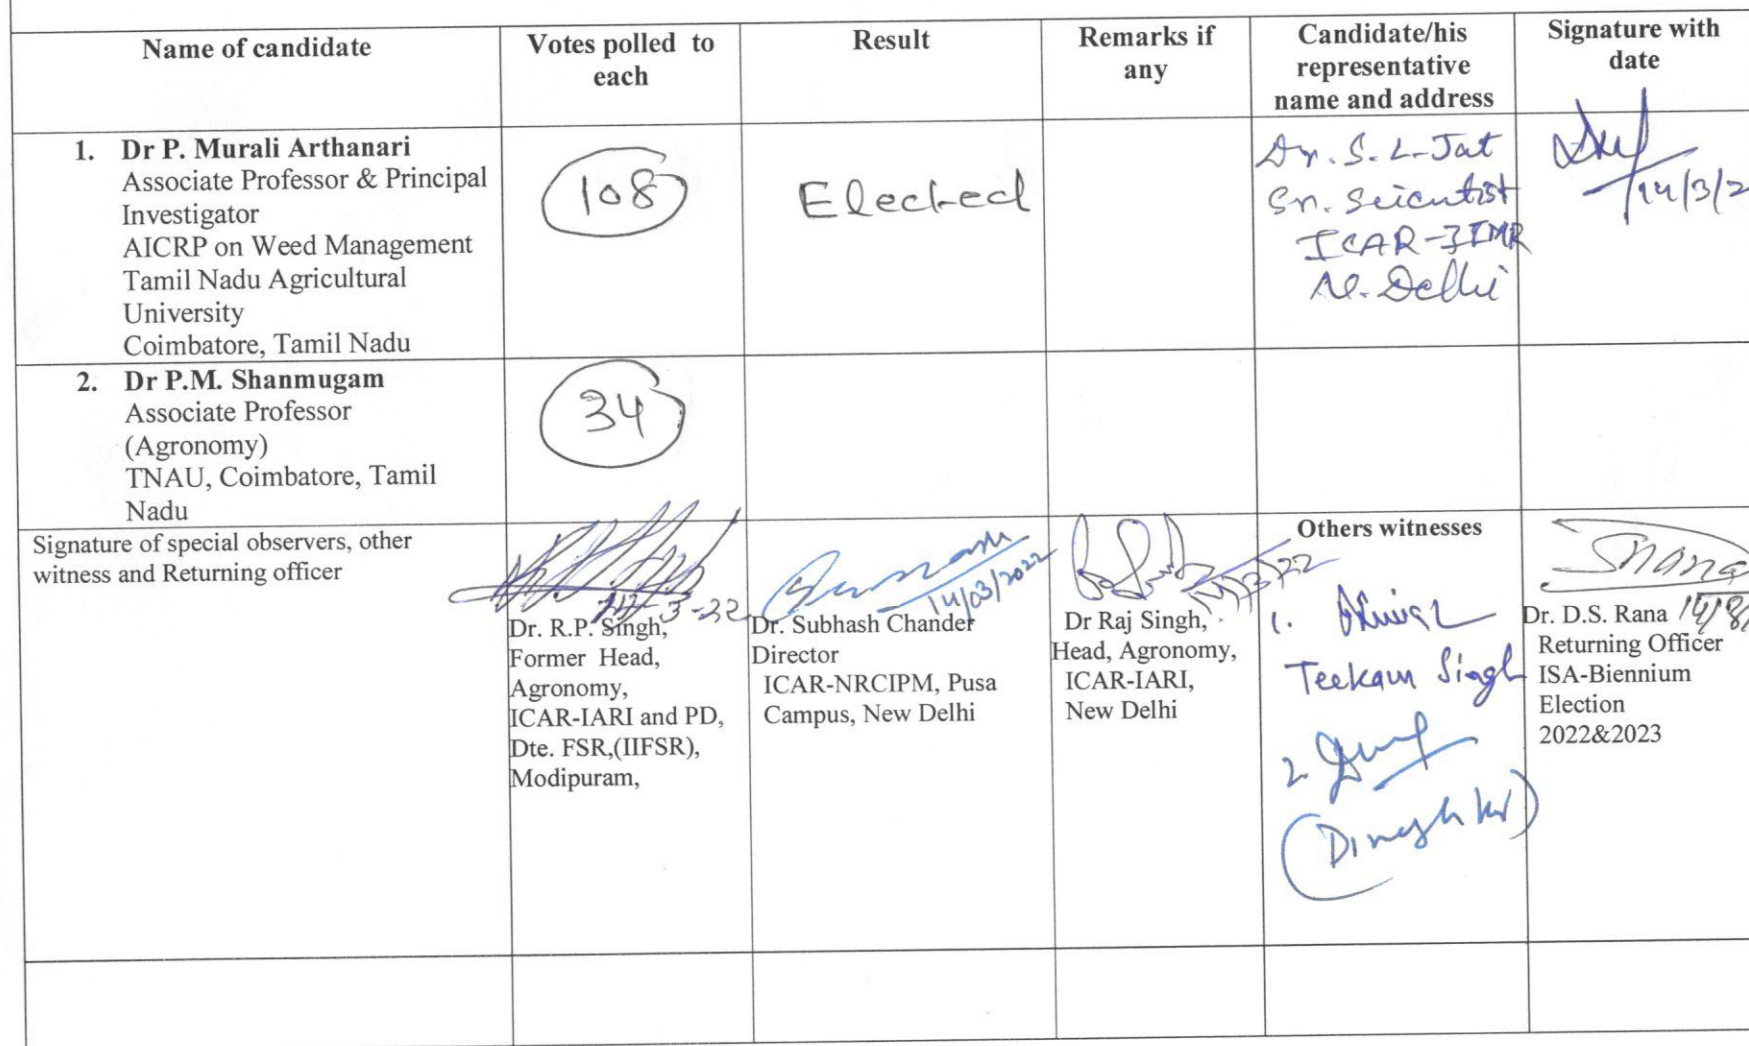 Name of candidate
Votes polled to
each
Result
Remarks if
any
Candidate/his
representative
name and address
Signature with
date
1. Dr P. Murali Arthanari
Associate Professor & Principal
Investigator
AICRP on Weed Management
Tamil Nadu Agricultural
University
Coimbatore, Tamil Nadu
108
Elected
Dr. S. L. Jat
Sn. Scientist
ICAR-IIMR
N. Delhi
14/3/2
2. Dr P.M. Shanmugam
Associate Professor
(Agronomy)
TNAU, Coimbatore, Tamil
Nadu
34
Signature of special observers, other
witness and Returning officer
14-3-22
Dr. R.P. Singh,
Former Head,
Agronomy,
ICAR-IARI and PD,
Dte. FSR,(IIFSR),
Modipuram,
14/03/2022
Dr. Subhash Chander
Director
ICAR-NRCIPM, Pusa
Campus, New Delhi
14/3/22
Dr Raj Singh,
Head, Agronomy,
ICAR-IARI,
New Delhi
Others witnesses
1.
Teekam Singh
2.
(Dinesh Kr)
Dr. D.S. Rana
Returning Officer
ISA-Biennium
Election
2022&2023